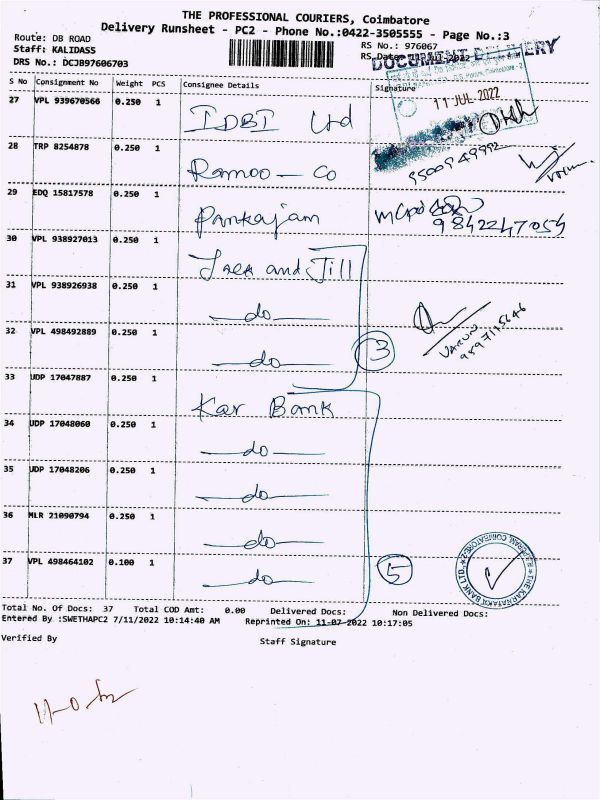 THE PROFESSIONAL COURIERS, Coimbatore
Delivery Runsheet - PC2 - Phone No.:0422-3505555 - Page No.:3
Route: DB ROAD
Staff: KALIDASS
DRS No.: DCJB97606703
RS No.: 976067
RS Date: Jul-2022
DOCUMENT DELIVERY
11 JUL 2022
S No Consignment No Weight PCS Consignee Details Signature
27 VPL 939670566 0.250 1 IDBI Ltd
28 TRP 8254878 0.250 1 Ramoo - Co 9500949992
29 EDQ 15817578 0.250 1 Pankajam 9842247054
30 VPL 938927013 0.250 1 Jack and Jill
31 VPL 938926938 0.250 1 —do—
32 VPL 498492889 0.250 1 —do— 3 VARUN 9597195646
33 UDP 17047887 0.250 1 Kar Bank
34 UDP 17048060 0.250 1 —do—
35 UDP 17048206 0.250 1 —do—
36 MLR 21090794 0.250 1 —do—
37 VPL 498464102 0.100 1 —do— 5
THE KARNATAKA BANK LTD.
Total No. Of Docs: 37 Total COD Amt: 0.00 Delivered Docs: Non Delivered Docs:
Entered By :SWETHAPC2 7/11/2022 10:14:40 AM Reprinted On: 11-07-2022 10:17:05
Verified By Staff Signature